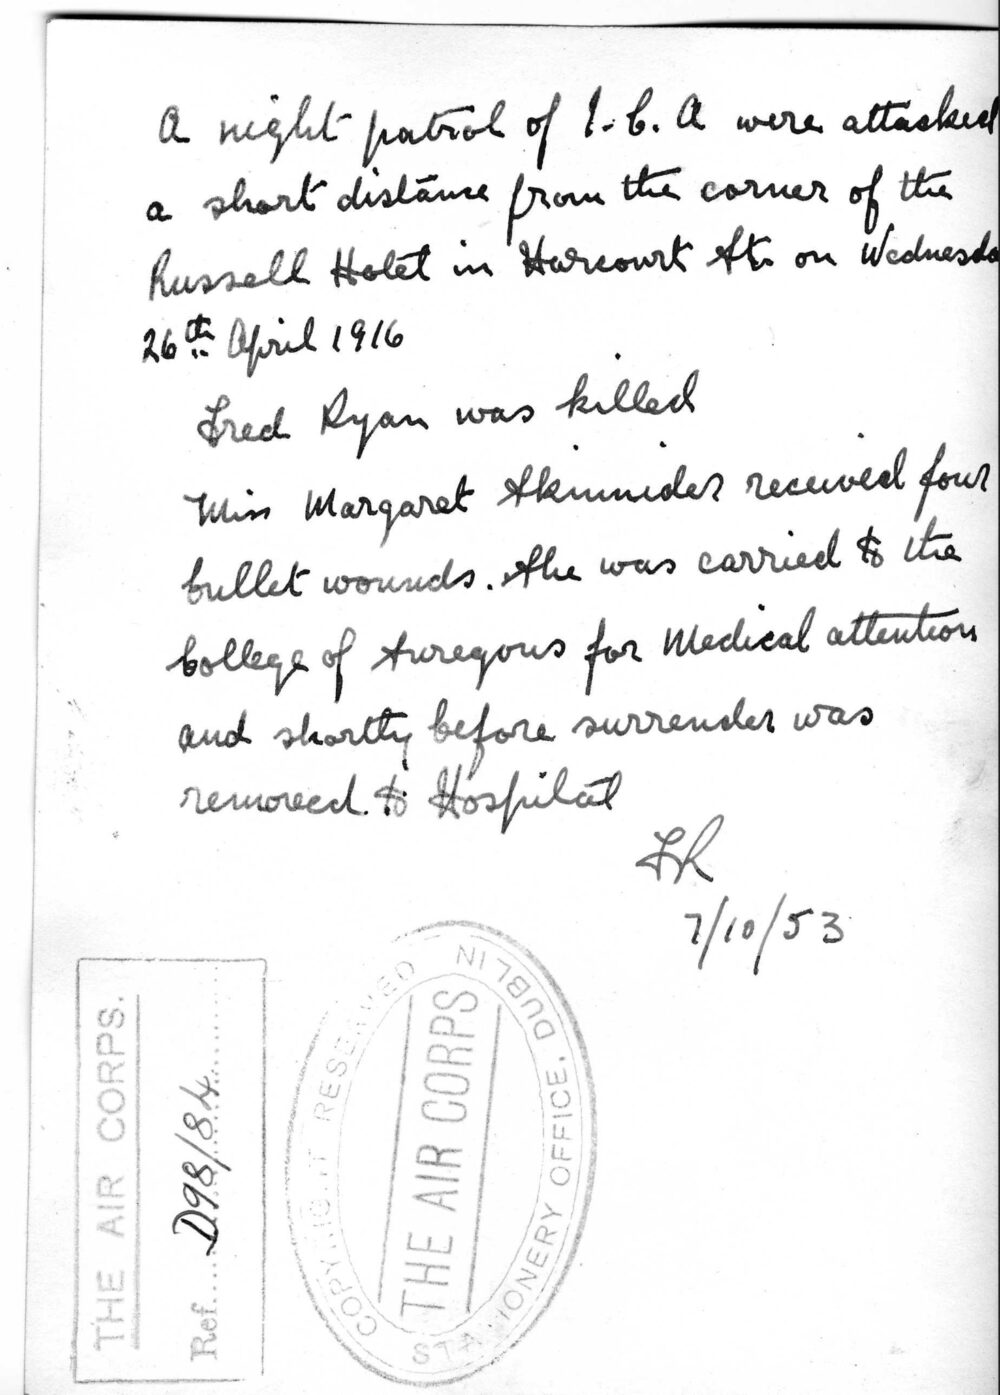 A night patrol of I.C.A were attacked
a short distance from the corner of the
Russell Hotel in Harcourt Str on Wednesda
26th April 1916
Fred Ryan was killed
Miss Margaret Skinnider received four
bullet wounds. She was carried to the
College of Suregons for Medical attention
and shortly before surrender was
removed to Hospital
FR
7/10/53
THE AIR CORPS.
Ref.... D98/84
COPYRIGHT RESERVED
THE AIR CORPS
STATIONERY OFFICE, DUBLIN